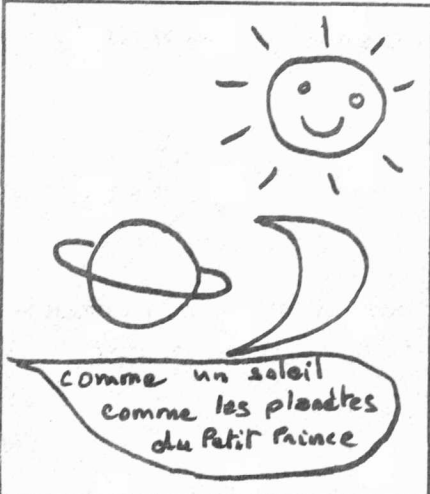 comme un soleil
comme les planètes
du Petit Prince